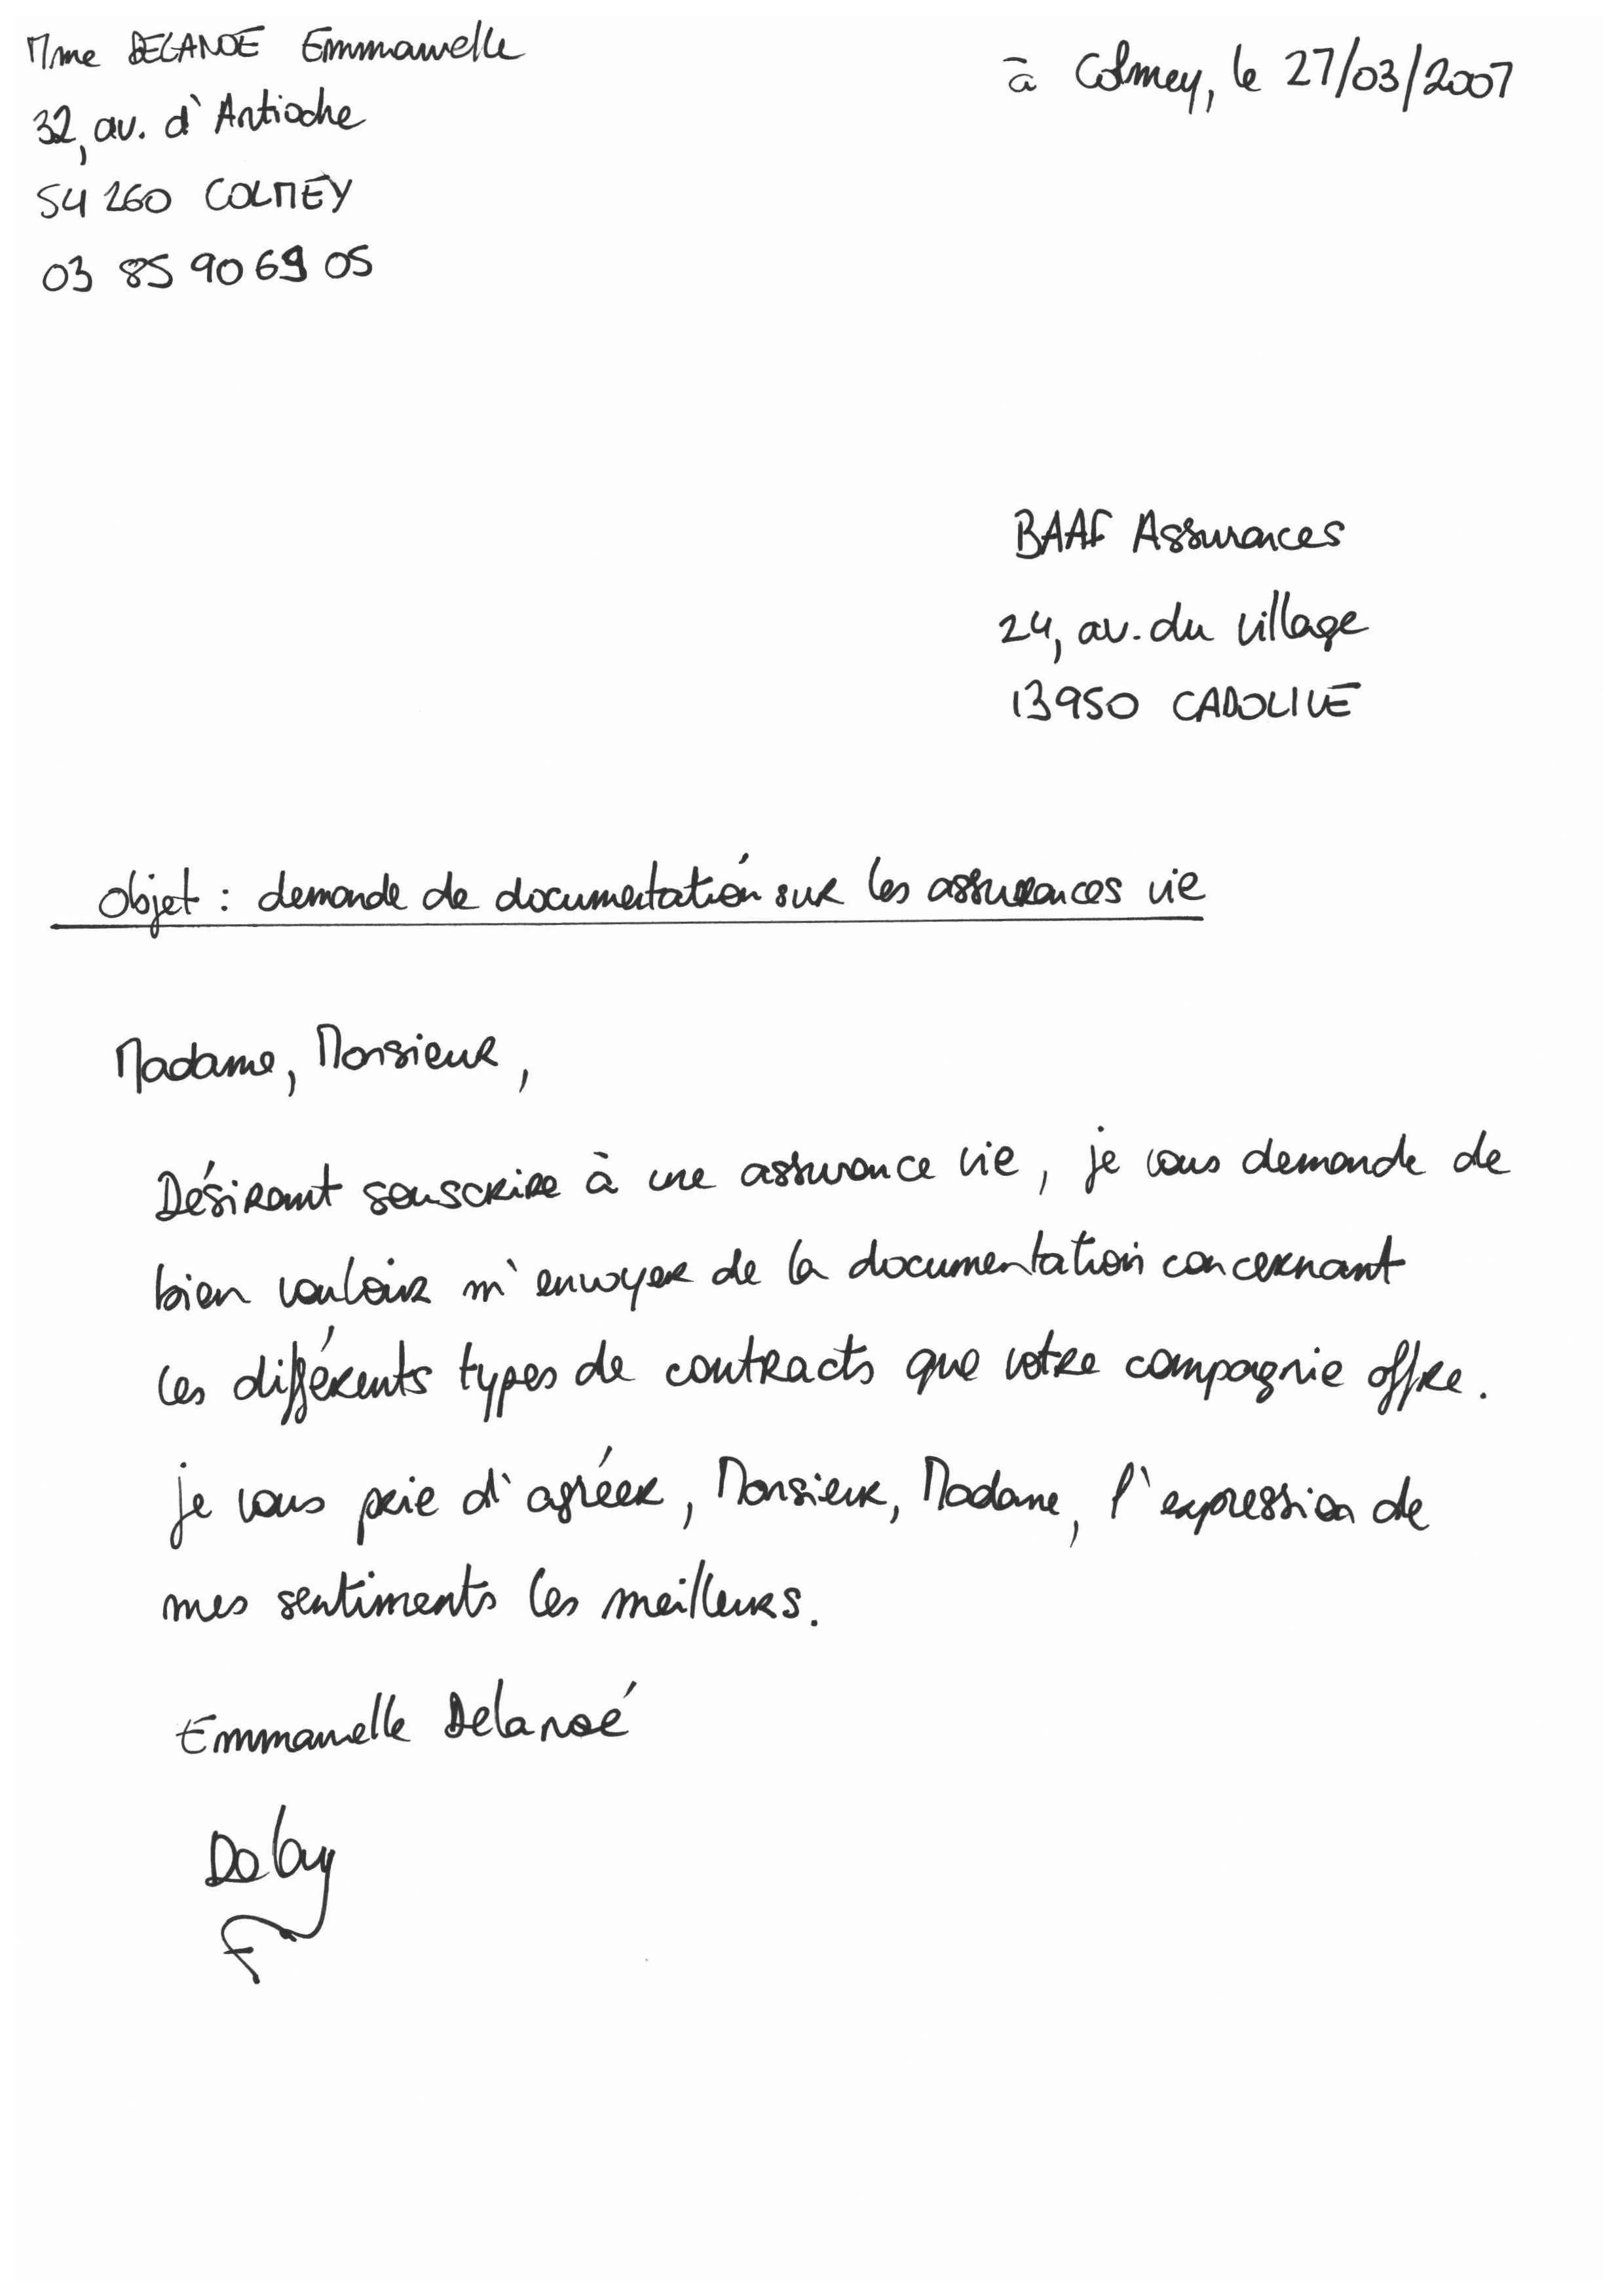 Mme DELANOE Emmanuelle
à Colmey, le 27/03/2007
32, av. d'Antioche
54 260 COLMEY
03 85 90 69 05
BAAF Assurances
24, av. du village
13950 CADOLIVE
Objet : demande de documentation sur les assurances vie
Madame, Monsieur,
Désirant souscrire à une assurance vie, je vous demande de
bien vouloir m'envoyer de la documentation concernant
les différents types de contracts que votre compagnie offre.
je vous prie d'agréer, Monsieur, Madame, l'expression de
mes sentiments les meilleurs.
Emmanuelle Delanoé